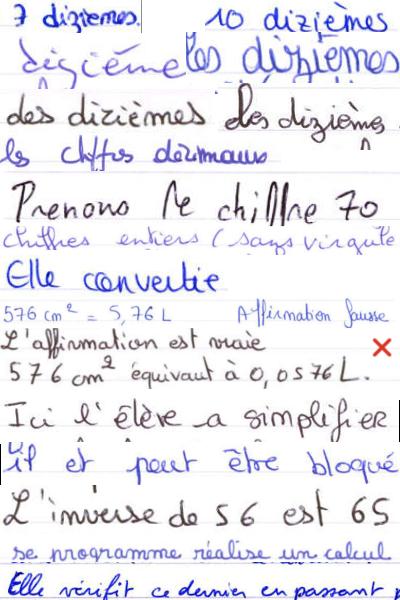 7 diziemes. 10 dizièmes
dizième les dizièmes
des dizièmes des dizièmes
les chiffres décimaux
Prenons le chiffre 70
chiffres entiers (sans virgule
Elle convertie
576 cm² = 5,76 L Affirmation fausse
L'affirmation est vraie
576 cm² équivaut à 0,0576 L.
Ici l'élève a simplifier
il et peut être bloqué
L'inverse de 56 est 65
se programme réalise un calcul
Elle vérifit ce dernier en passant p